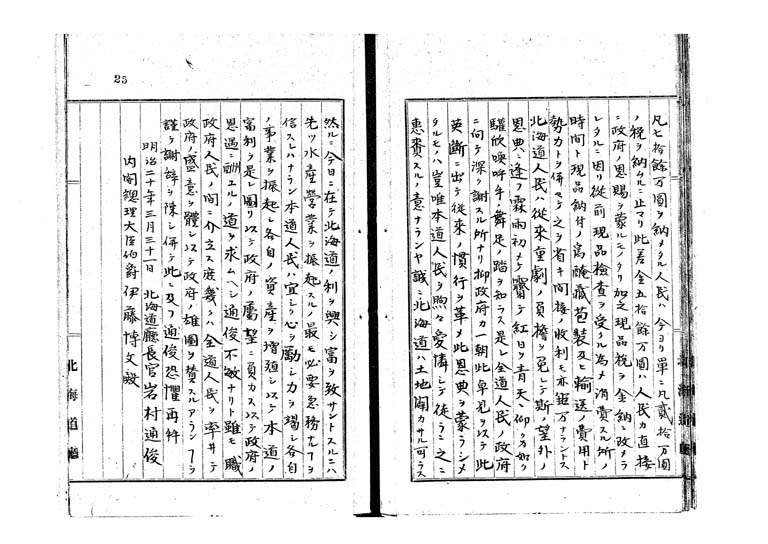 凡七拾餘万圓ヲ納メタル人民ハ今ヨリ單ニ凡貳拾万圓
ノ税ヲ納ムルニ止マリ此差金五拾餘万圓ハ人民カ直接
ニ政府ノ恩賜ヲ蒙ルモノタリ加之現品税ヲ金納ニ改メラ
レタルニ因リ從前現品檢査ヲ受クル為メ消費スル所ノ
時間ト現品納付ノ為メ醃藏苞装及ヒ輸送ノ費用ト
勢力トヲ併セテ之ヲ省キ間接ノ收利モ亦鉅万ナラントス
北海道人民ハ從来重劇ノ負擔ヲ免レテ斯ノ望外ノ
恩典ニ逢フ霖雨初メテ霽テ紅日ヲ青天ニ仰クカ如ク
驩欣喚呼手ノ舞足ノ踏ヲ知ラス是レ全道人民ノ政府
ニ向テ深ク謝スル所ナリ抑政府カ一朝此卓犯ヲ以テ此
英斷ニ出テ從来ノ慣行ヲ革メ此恩典ヲ蒙ラシメ
タルモノハ豈唯本道人民ヲ煦々愛憐シテ徒ラニ之ニ
惠賚スルノ意ナランヤ誠ニ北海道ハ土地闢カサル可ラス
25
然ルニ今日ニ在テ北海道ノ利ヲ興シ富ヲ致サントスルニハ
先ツ水産營業ヲ振起スルノ最モ必要急務ナルヲ
信スレハナラン本道人民ハ宜シク心ヲ勵シ力ヲ竭シ各自
ノ事業ヲ振起シ各自ノ資産ヲ増殖シ以テ本道ノ
富利ヲ是レ圖リ以テ政府ノ屬望ニ負カス以テ政府ノ
恩遇ニ酬ユルノ道ヲ求ムヘシ通俊不敏ナリト雖モ職
政府人民ノ間ニ介立ス庶幾クハ全道人民ヲ率ヰテ
政府ノ盛意ヲ體シ以テ政府ノ雄圖ヲ賛スルアランフヲ
謹テ謝辞ヲ陳シ併テ此ニ及フ通俊恐懼再拜
明治二十年三月三十一日 北海道廳長官岩村通俊
内閣總理大臣伯爵伊藤博文殿
北海道廳